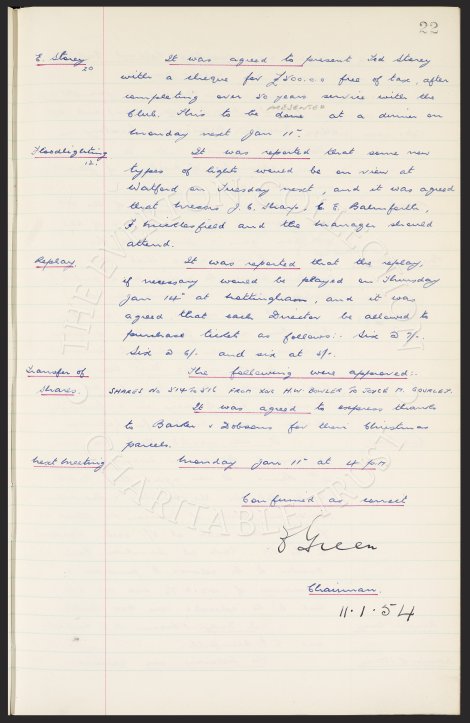 22
E. Storey
20
It was agreed to present Ted Storey
with a cheque for £500.0.0 free of tax, after
completing over 20 years service with the
Club. This to be done at a dinner on
PRESENTED
Monday next Jan 11th.
Floodlighting
12.
It was reported that some new
types of lights would be on view at
Watford on Tuesday next, and it was agreed
that Messrs J. C. Sharp, C. E. Balmforth,
F. Micklesfield and the Manager should
attend.
Replay
It was reported that the replay,
if necessary would be played on Thursday
Jan 14th at Nottingham, and it was
agreed that each Director be allowed to
purchase ticket as follows:- Six @ 7/-.
Six @ 6/- and six at 5/-.
Transfer of
Shares.
The following were approved:-
SHARES No 514 TO 516 FROM H.W. BOWLER TO JOYCE M. GOURLEY.
It was agreed to express thanks
to Barker & Dobsons for their Christmas
parcels.
Next Meeting
Monday Jan 11th at 4 p.m.
Confirmed as correct
Green
Chairman.
11.1.54
THE EVERTON COLLECTION
CHARITABLE TRUST